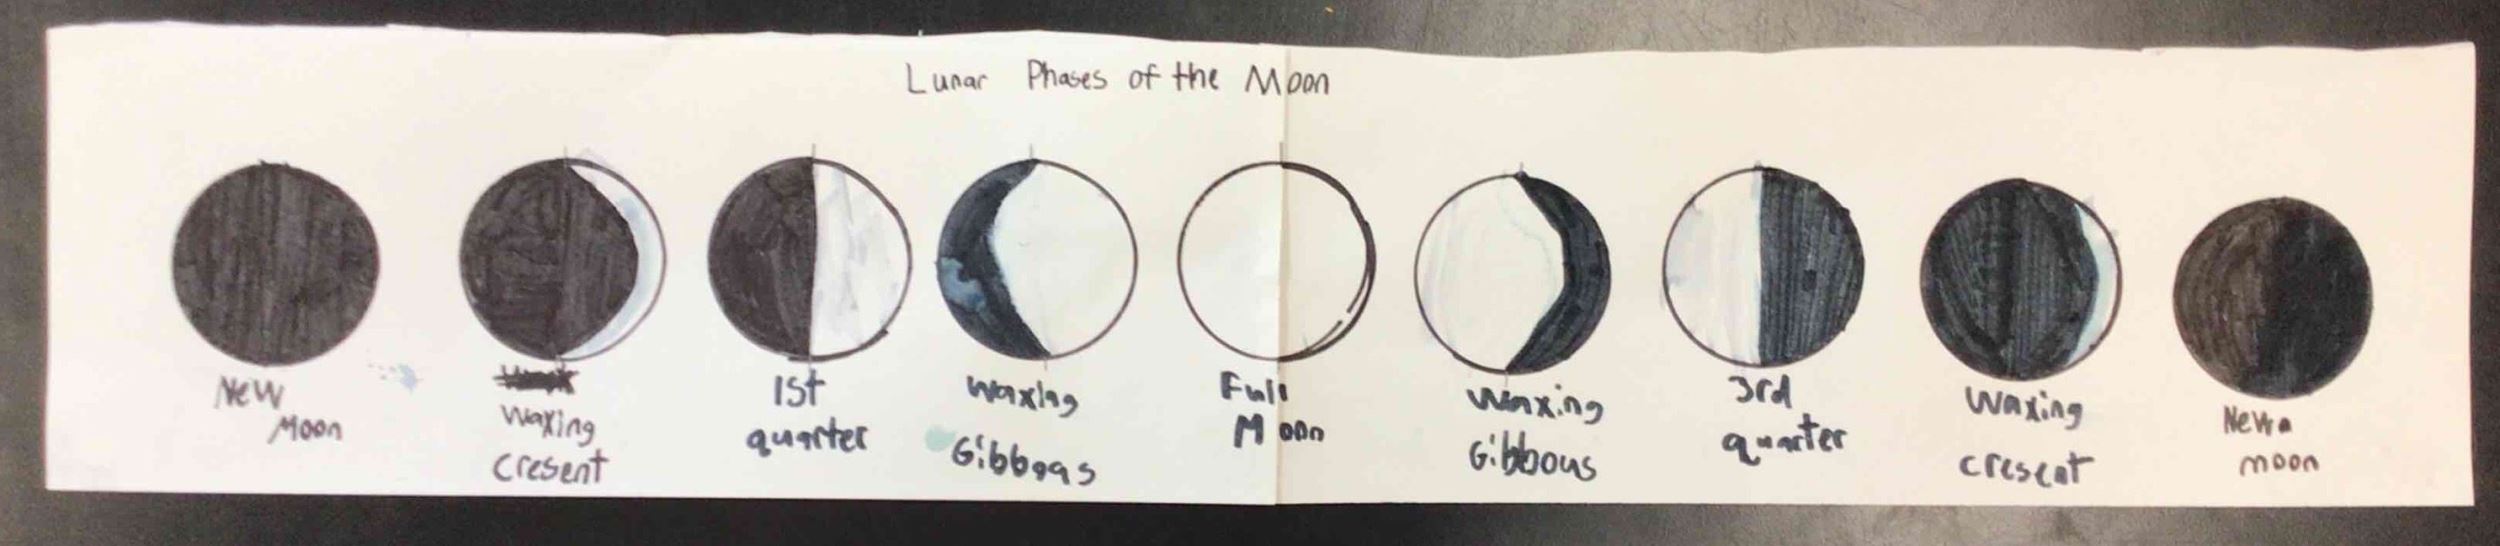 Lunar Phases of the Moon
New
Moon
Waxing
Cresent
1st
quarter
Waxing
Gibbous
Full
Moon
Waxing
Gibbous
3rd
quarter
Waxing
cresent
New
moon